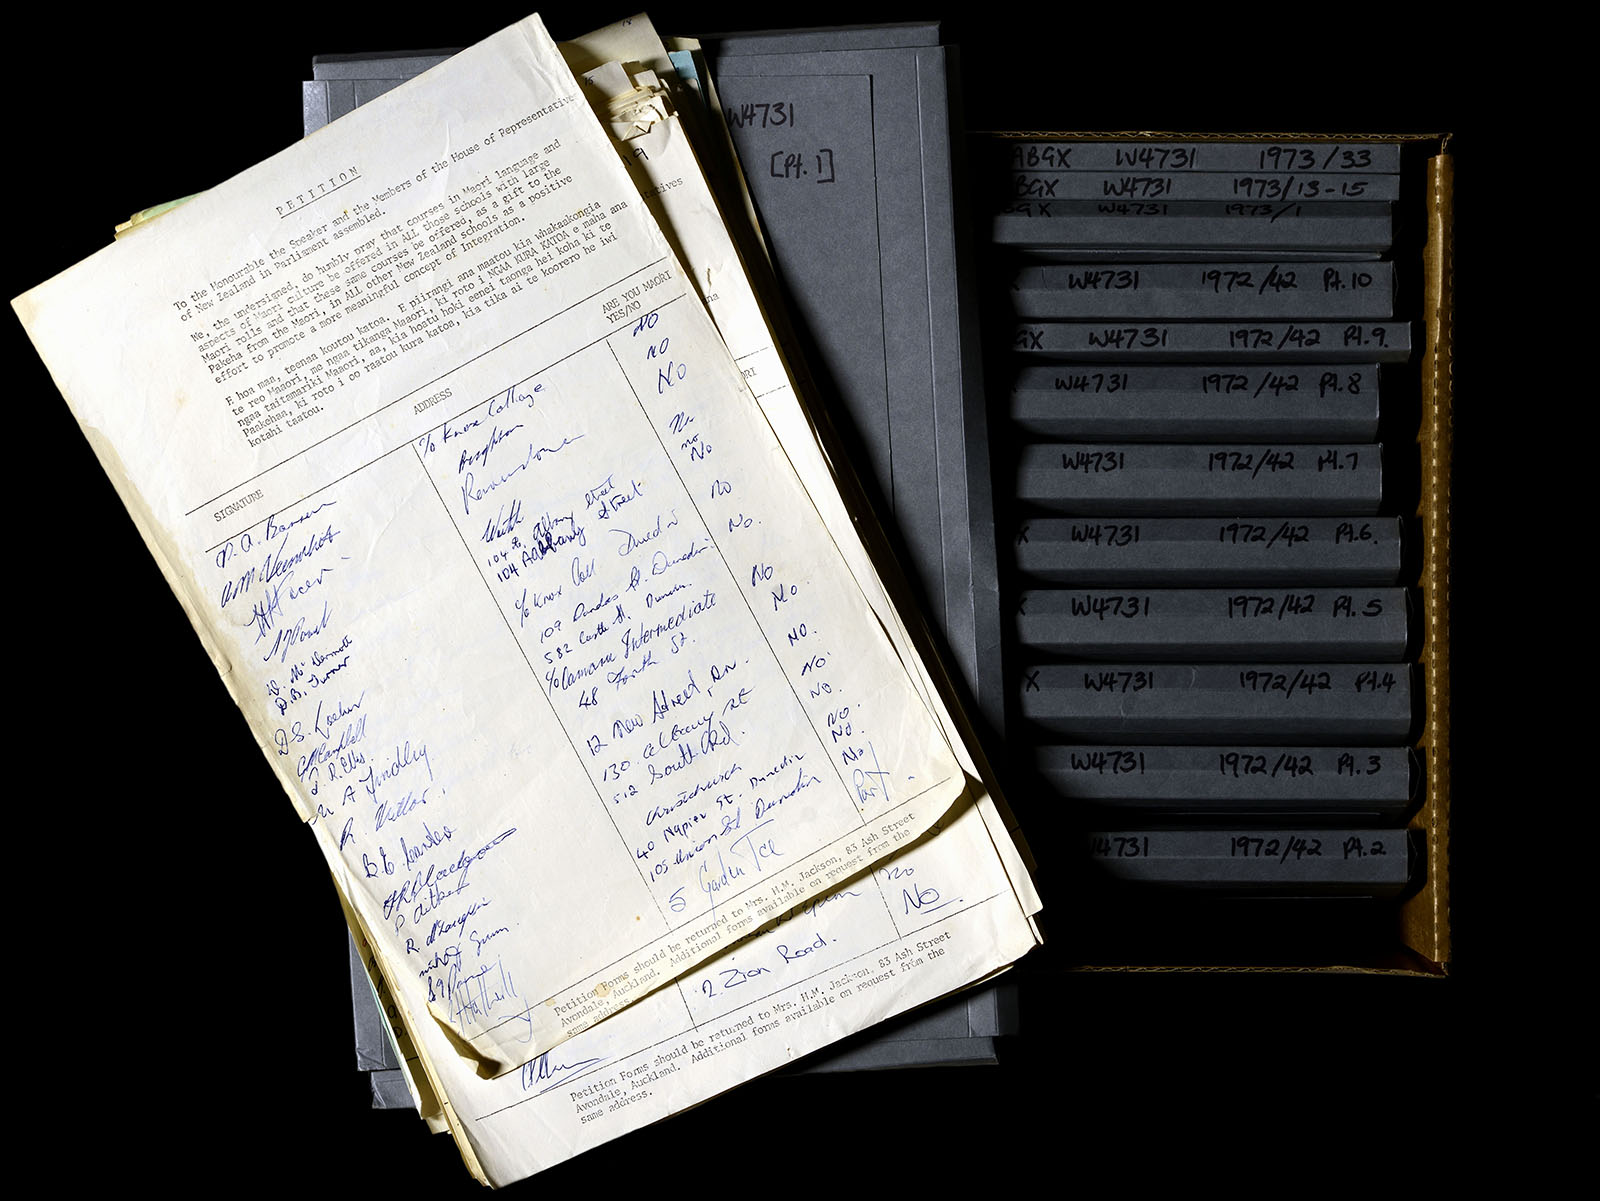 PETITION
To the Honourable the Speaker and the Members of the House of Representative
of New Zealand in Parliament assembled.
We, the undersigned, do humbly pray that courses in Maori language and
aspects of Maori culture be offered in ALL those schools with large
Maori rolls and that these same courses be offered, as a gift to the
Pakeha from the Maori, in ALL other New Zealand schools as a positive
effort to promote a more meaningful concept of Integration.
E hoa maa, teenaa koutou katoa. E piirangi ana maatou kia whakaakongia
te reo Maaori, me ngaa tikanga Maaori, ki roto i NGAA KURA KATOA e maha ana
ngaa taitamariki Maaori, aa, kia hoatu hoki eenei taonga hei koha ki te
Paakehaa, ki roto i oo raatou kura katoa, kia tika ai te koorero he iwi
kotahi taatou.
SIGNATURE ADDRESS ARE YOU MAORI
YES/NO
c/o Knox College NO
Brighton NO
Ravensbourne NO
D. McDermott 104 Albany Street no
D.B. Turner 104 Albany Street No
c/o Knox Coll Dunedin NO
G Campbell 109 Dundas St. Dunedin No.
J. R. Ellis 582 Castle St. Dunedin No
M A Findley c/o Oamaru Intermediate No
48 Forth St. NO.
12 New Street, Dn. NO.
130 Albany St NO.
P Aitken 512 South Rd. NO.
Christchurch No.
40 Napier St. Dunedin No
105 Union St Dunedin
5 Garden Tce Part
Petition Forms should be returned to Mrs. H.M. Jackson, 83 Ash Street
Avondale, Auckland. Additional forms available on request from the
same address.
No
2 Zion Road. No
Petition Forms should be returned to Mrs. H.M. Jackson, 83 Ash Street
Avondale, Auckland. Additional forms available on request from the
same address.
18
15
19
W4731
[Pt. 1]
ABGX W4731 1973/33
BGX W4731 1973/13-15
GX W4731 1973/1
W4731 1972/42 Pt.10
GX W4731 1972/42 Pt.9.
W4731 1972/42 Pt.8
W4731 1972/42 Pt.7
X W4731 1972/42 Pt.6.
X W4731 1972/42 Pt.5
X W4731 1972/42 Pt.4
W4731 1972/42 Pt.3
W4731 1972/42 Pt.2